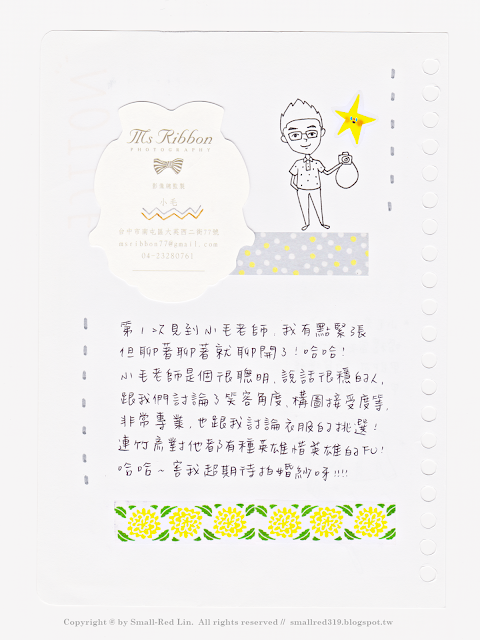 Ms Ribbon
PHOTOGRAPHY
小毛
msribbon77@gmail.com
04-23280761
第1次見到小毛老師,我有點緊張
但聊著聊著就聊開了!哈哈!
小毛老師是個很聰明、說話很穩的人,
跟我們討論了笑容角度、構圖接受度等,
非常專業,也跟我討論衣服的挑選!
連竹高對他都有種英雄惜英雄的FU!
哈哈~害我超期待拍婚紗呀!!!!
Copyright ® by Small-Red Lin. All rights reserved // smallred319.blogspot.tw